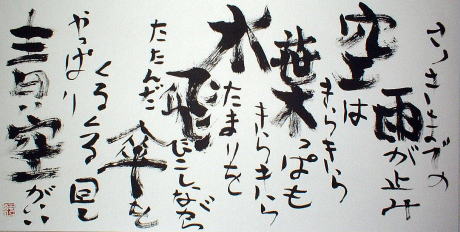 さっきまでの
雨が止み
空は
きらきら
葉っぱも
きらきら
水たまりを
飛びこしながら
たたんだ
傘を
くるくる回して
やっぱり
青い空がいい